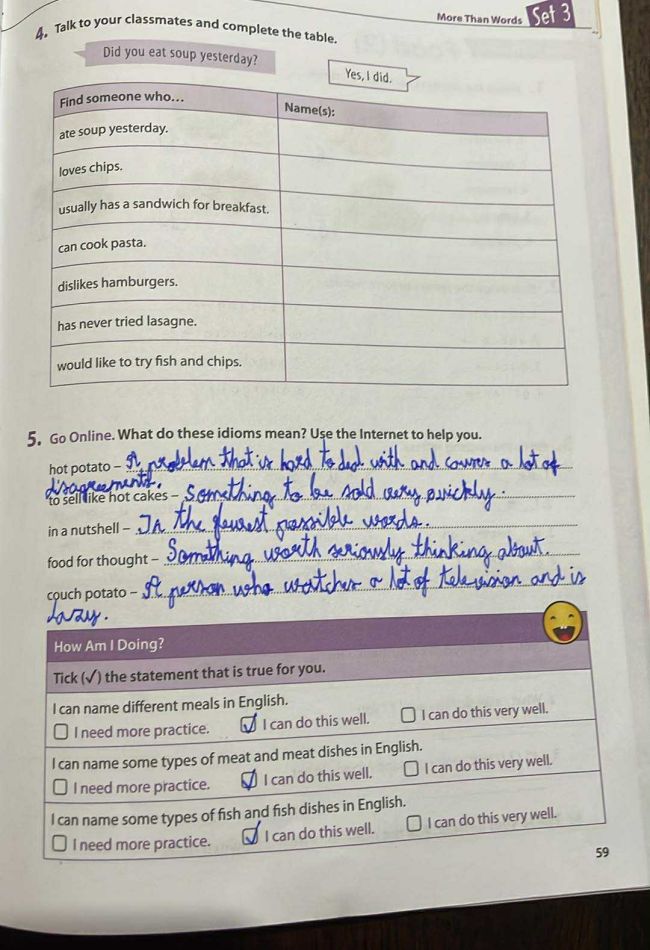 More Than Words Set 3
4. Talk to your classmates and complete the table.
Did you eat soup yesterday?
Yes, I did.
Find someone who... Name(s):
ate soup yesterday.
loves chips.
usually has a sandwich for breakfast.
can cook pasta.
dislikes hamburgers.
has never tried lasagne.
would like to try fish and chips.
5. Go Online. What do these idioms mean? Use the Internet to help you.
hot potato – A problem that is hard to deal with and causes a lot of
disagreements.
to sell like hot cakes – Something to be sold very quickly.
in a nutshell – In the fewest possible words.
food for thought – Something worth seriously thinking about.
couch potato – A person who watches a lot of television and is
lazy.
How Am I Doing?
Tick (√) the statement that is true for you.
I can name different meals in English.
I need more practice. ✓ I can do this well. I can do this very well.
I can name some types of meat and meat dishes in English.
I need more practice. ✓ I can do this well. I can do this very well.
I can name some types of fish and fish dishes in English.
I need more practice. ✓ I can do this well. I can do this very well.
59